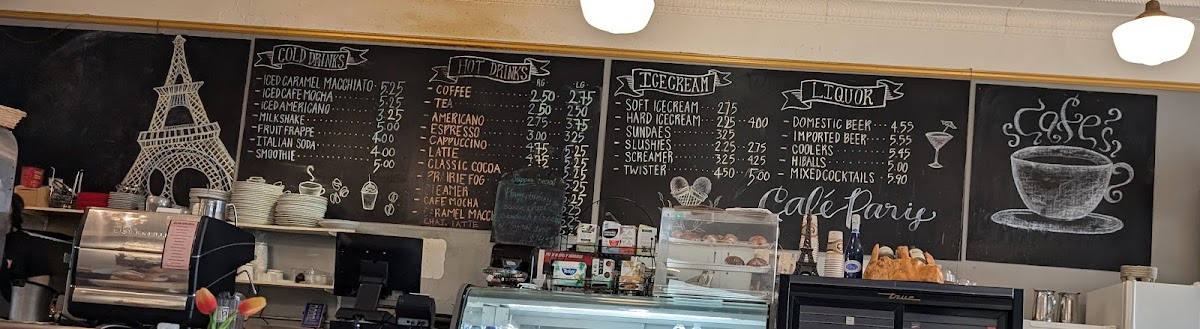 COLD DRINKS
- ICED CARAMEL MACCHIATO · 5.25
- ICED CAFE MOCHA 5.25
- ICED AMERICANO 3.25
- MILKSHAKE 5.00
- FRUIT FRAPPE 4.00
- ITALIAN SODA 4.00
- SMOOTHIE 5.00
HOT DRINKS
RG LG
- COFFEE 2.50 2.75
- TEA 2.50 2.50
- AMERICANO 2.75 3.75
- ESPRESSO 3.00
- CAPPUCCINO 4.75
- LATTE 4.75
- CLASSIC COCOA
PRAIRIE FOG
CAFE MOCHA
CHAI LATTE
ICECREAM
- SOFT ICECREAM 2.75
- HARD ICECREAM 4.00
- SUNDAES 3.25
- SLUSHIES 2.25 - 2.75
- SCREAMER 3.25 - 4.25
- TWISTER 4.50 5.00
LIQUOR
- DOMESTIC BEER 4.55
- IMPORTED BEER 5.55
- COOLERS 5.45
- HIBALLS 5.00
- MIXED COCKTAILS 5.90
Café Paris
Cafes
true